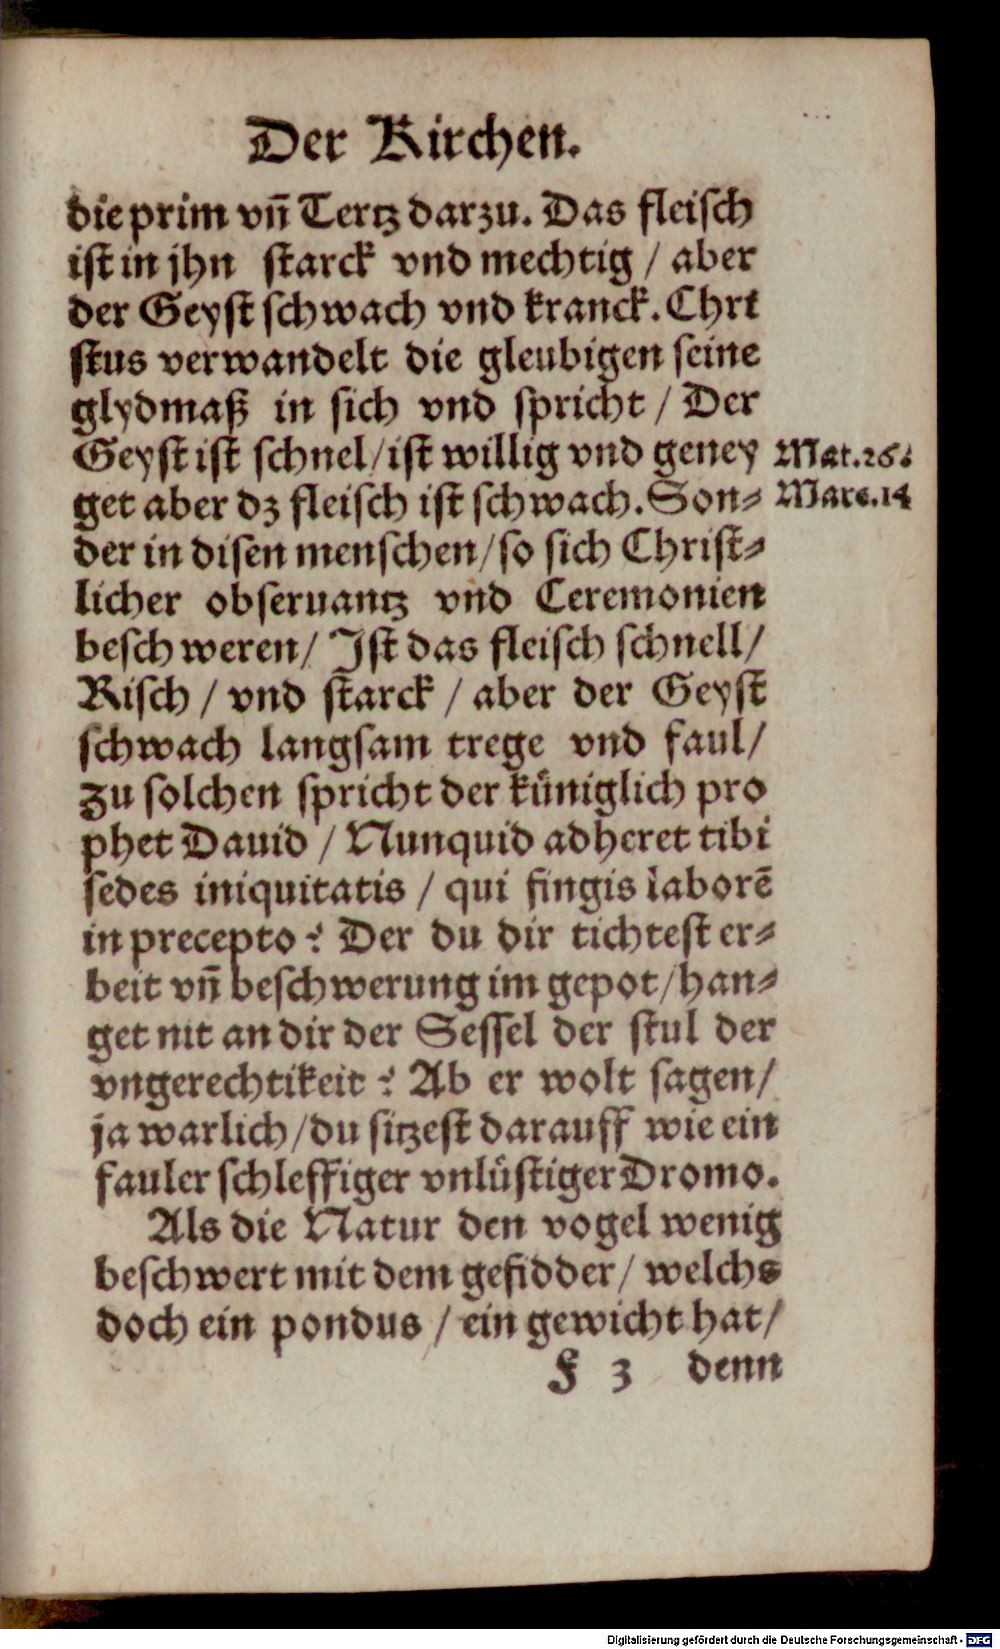 Der Kirchen.
die prim vñ Tertz darzu. Das fleisch
ist in jhn starck vnd mechtig / aber
der Geyst schwach vnd kranck. Chri
stus verwandelt die gleubigen seine
glydmaß in sich vnd spricht / Der
Geyst ist schnel / ist willig vnd geney
Mat. 26.
get aber dz fleisch ist schwach. Son⸗
Marc. 14
der in disen menschen / so sich Christ⸗
licher obseruantz vnd Ceremonien
beschweren / Jst das fleisch schnell /
Risch / vnd starck / aber der Geyst
schwach langsam trege vnd faul /
zu solchen spricht der küniglich pro
phet Dauid / Nunquid adheret tibi
sedes iniquitatis / qui fingis laborē
in precepto ? Der du dir tichtest er⸗
beit vñ beschwerung im gepot / han⸗
get nit an dir der Sessel der stul der
vngerechtikeit ? Ab er wolt sagen /
ja warlich / du sitzest darauff wie ein
fauler schleffiger vnlüstiger Dromo.
Als die Natur den vogel wenig
beschwert mit dem gefidder / welchs
doch ein pondus / ein gewicht hat /
F 3 denn
Digitalisierung gefördert durch die Deutsche Forschungsgemeinschaft - DFG